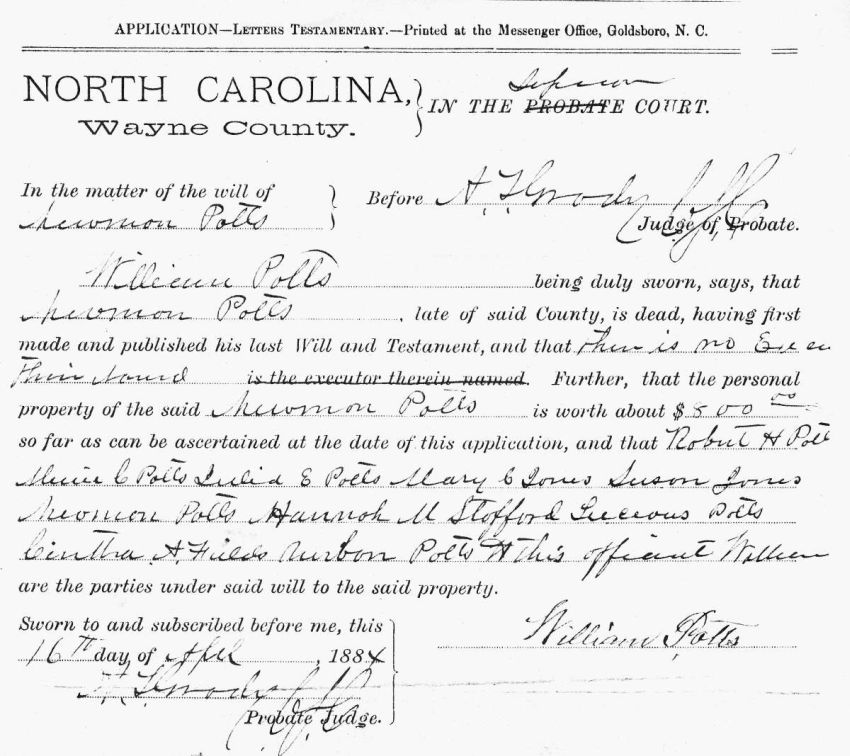 APPLICATION—LETTERS TESTAMENTARY.—Printed at the Messenger Office, Goldsboro, N. C.
NORTH CAROLINA,
Wayne County.
Superior
IN THE PROBATE COURT.
In the matter of the will of
Newmon Potts
Before A. T. Grady C.S.C.
Judge of Probate.
William Potts being duly sworn, says, that
Newmon Potts, late of said County, is dead, having first
made and published his last Will and Testament, and that ther is no Exe
is the executor therein named. Further, that the personal
property of the said Newmon Potts is worth about $800 00
so far as can be ascertained at the date of this application, and that Robert H Potts
C Potts Julid E Potts Mary C Jones Suson Jones
Newmon Potts Hannoh M Stofford Lucious Potts
Cintha A. Fields Nurbon Potts & this officent William
are the parties under said will to the said property.
Sworn to and subscribed before me, this
16th day of Aprl, 1884
A. T. Grady C.S.C.
Probate Judge.
William Potts